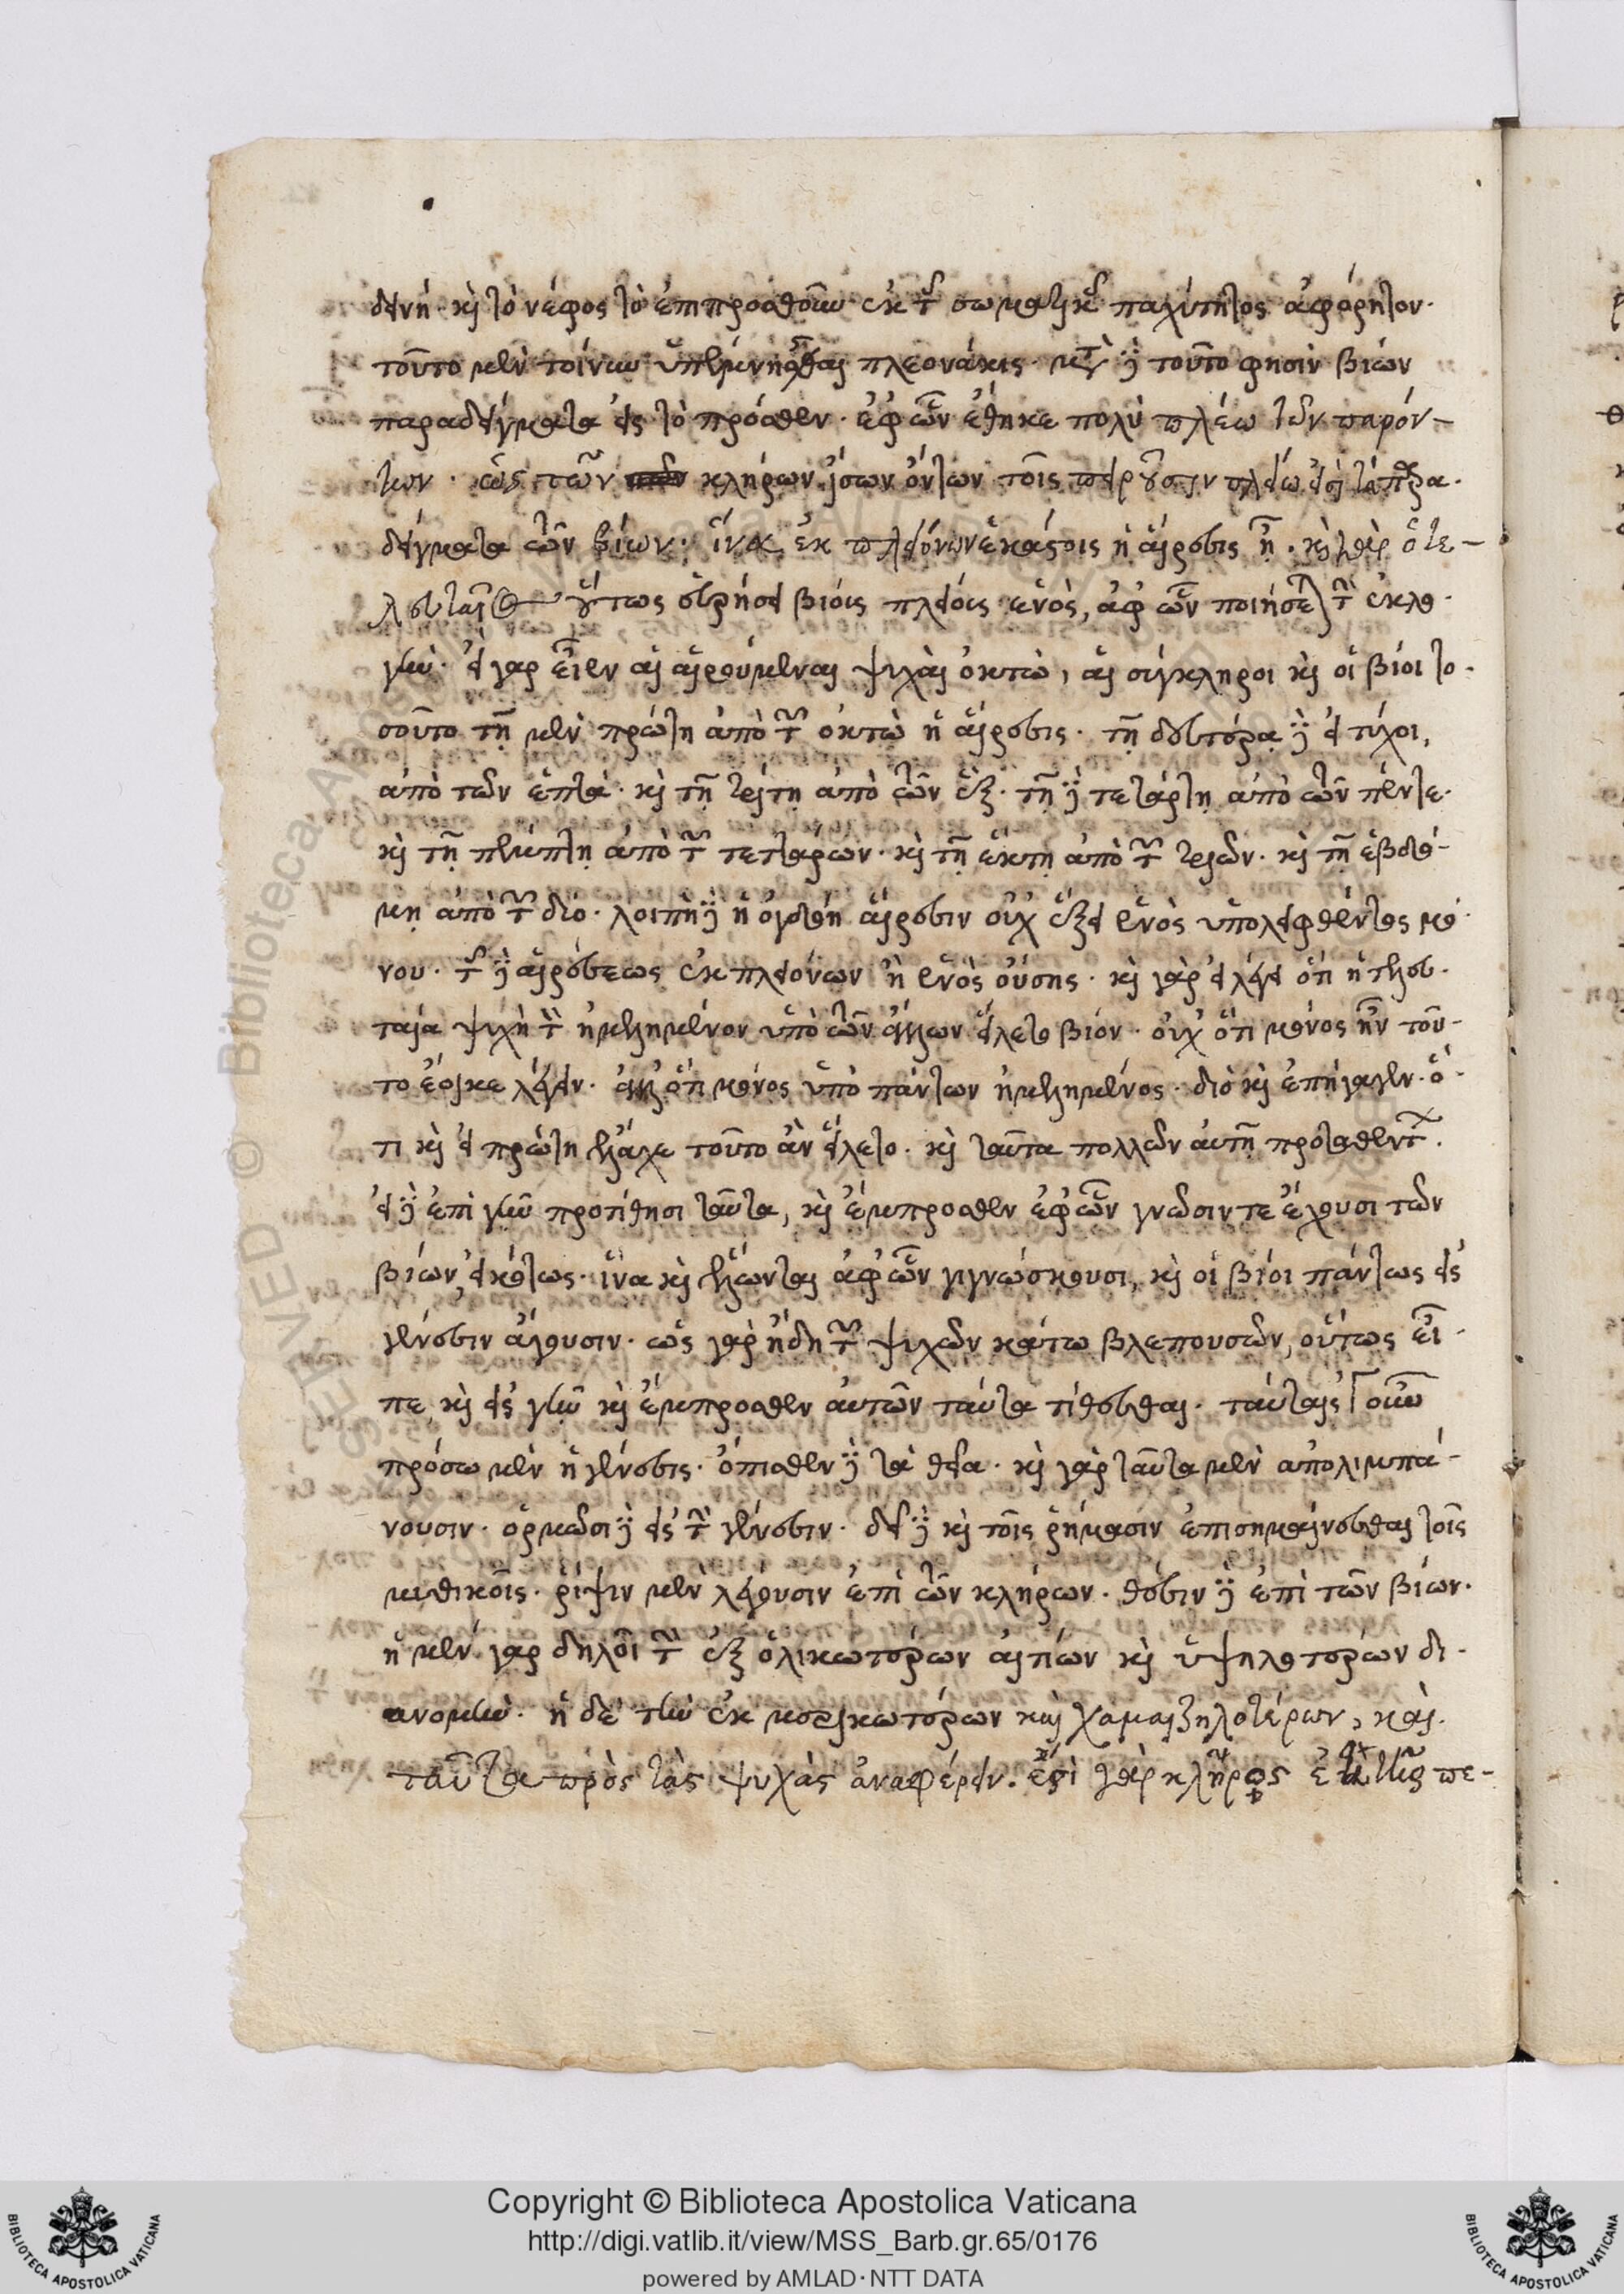 δεινὴ· καὶ τὸ νέφος τὸ ἐπιπροσθοῦν ἐκ τῆς σωματικῆς παχύτητος ἀφόρητον·
τοῦτο μὲν τοίνυν ὑπεμνήσθαι πλεονάκις· μετὰ δὲ τοῦτο φησὶν βίων
παραδείγματα εἰς τὸ πρόσθεν· ἐφ' ὧν ἔθηκε πολὺ πλέω τῶν παρόν-
των· ὡς τῶν κλήρων ἴσων ὄντων τοῖς παροῦσιν πλείω εἶναι τὰ παρα-
δείγματα τῶν βίων· ἵνα ἐκ πλειόνων ἑκάστοις ἡ αἵρεσις ᾖ· καὶ γὰρ ὁ τε-
λευταῖος οὕτως εὑρήσει βίοις πλείοις ἑνὸς, ἀφ' ὧν ποιήσεται τὴν ἐκλο-
γήν· εἰ γὰρ εἶεν αἱ αἱρούμεναι ψυχαὶ ὀκτὼ, αἱ σύγκληροι καὶ οἱ βίοι το-
σοῦτο τῇ μὲν πρώτῃ ἀπὸ τῶν ὀκτὼ ἡ αἵρεσις· τῇ δευτέρᾳ δὲ εἰ τύχοι,
ἀπὸ τῶν ἑπτά· καὶ τῇ τρίτῃ ἀπὸ τῶν ἕξ· τῇ δὲ τετάρτῃ ἀπὸ τῶν πέντε·
καὶ τῇ πέμπτῃ ἀπὸ τῶν τεττάρων· καὶ τῇ ἕκτῃ ἀπὸ τῶν τριῶν· καὶ τῇ ἑβδό-
μῃ ἀπὸ τῶν δύο· λοιπὴ δὲ ἡ ὀγδόη αἵρεσιν οὐχ ἕξει ἑνὸς ὑπολειφθέντος μό-
νου· τῆς δὲ αἱρέσεως ἐκ πλειόνων ἢ ἑνὸς οὔσης· καὶ γὰρ εἰ λέγει ὅτι ἡ τελευ-
ταία ψυχὴ τὸν ἠμελημένον ὑπὸ τῶν ἄλλων εἵλετο βίον· οὐχ ὅτι μόνος ἦν τοῦ-
το ἔοικε λέγειν· ἀλλ' ὅτι μόνος ὑπὸ πάντων ἠμελημένος· διὸ καὶ ἐπήγαγεν· ὅ-
τι καὶ εἰ πρώτη ἔλαχε τοῦτο ἂν εἵλετο· καὶ ταῦτα πολλῶν αὐτῇ προταθέντων·
εἰ δὲ ἐπὶ γῆν προτίθησι ταῦτα, καὶ ἔμπροσθεν ἐφ' ὧν γνῶσιν τε ἔχουσι τῶν
βίων, εἰκότως· ἵνα καὶ ἕλωνται ἀφ' ὧν γιγνώσκουσι, καὶ οἱ βίοι πάντως εἰς
γένεσιν ἄγουσιν· ὡς γὰρ ἤδη τῶν ψυχῶν κάτω βλεπουσῶν, οὕτως εἶ-
πε, καὶ εἰς γῆν καὶ ἔμπροσθεν αὐτῶν ταῦτα τίθεσθαι· ταύταις οὖν
πρόσω μὲν ἡ γένεσις· ὄπισθεν δὲ τὰ θεῖα· καὶ γὰρ ταῦτα μὲν ἀπολιμπά-
νουσιν· ὁρμῶσι δὲ εἰς τὴν γένεσιν· δεῖ δὲ καὶ τοῖς ῥήμασιν ἐπισημαίνεσθαι τοῖς
μυθικοῖς· ῥίψιν μὲν λέγουσιν ἐπὶ τῶν κλήρων· θέσιν δὲ ἐπὶ τῶν βίων·
ἡ μὲν γὰρ δηλοῖ τὴν ἐξ ὁλικωτέρων αἰτίων καὶ ὑψηλοτέρων δι-
ανομήν· ἡ δὲ τὴν ἐκ μερικωτέρων καὶ χαμαιζηλοτέρων, καὶ
ταῦτα πρὸς τὰς ψυχὰς ἀναφέρειν· ἐπὶ γὰρ κλῆρος πε-